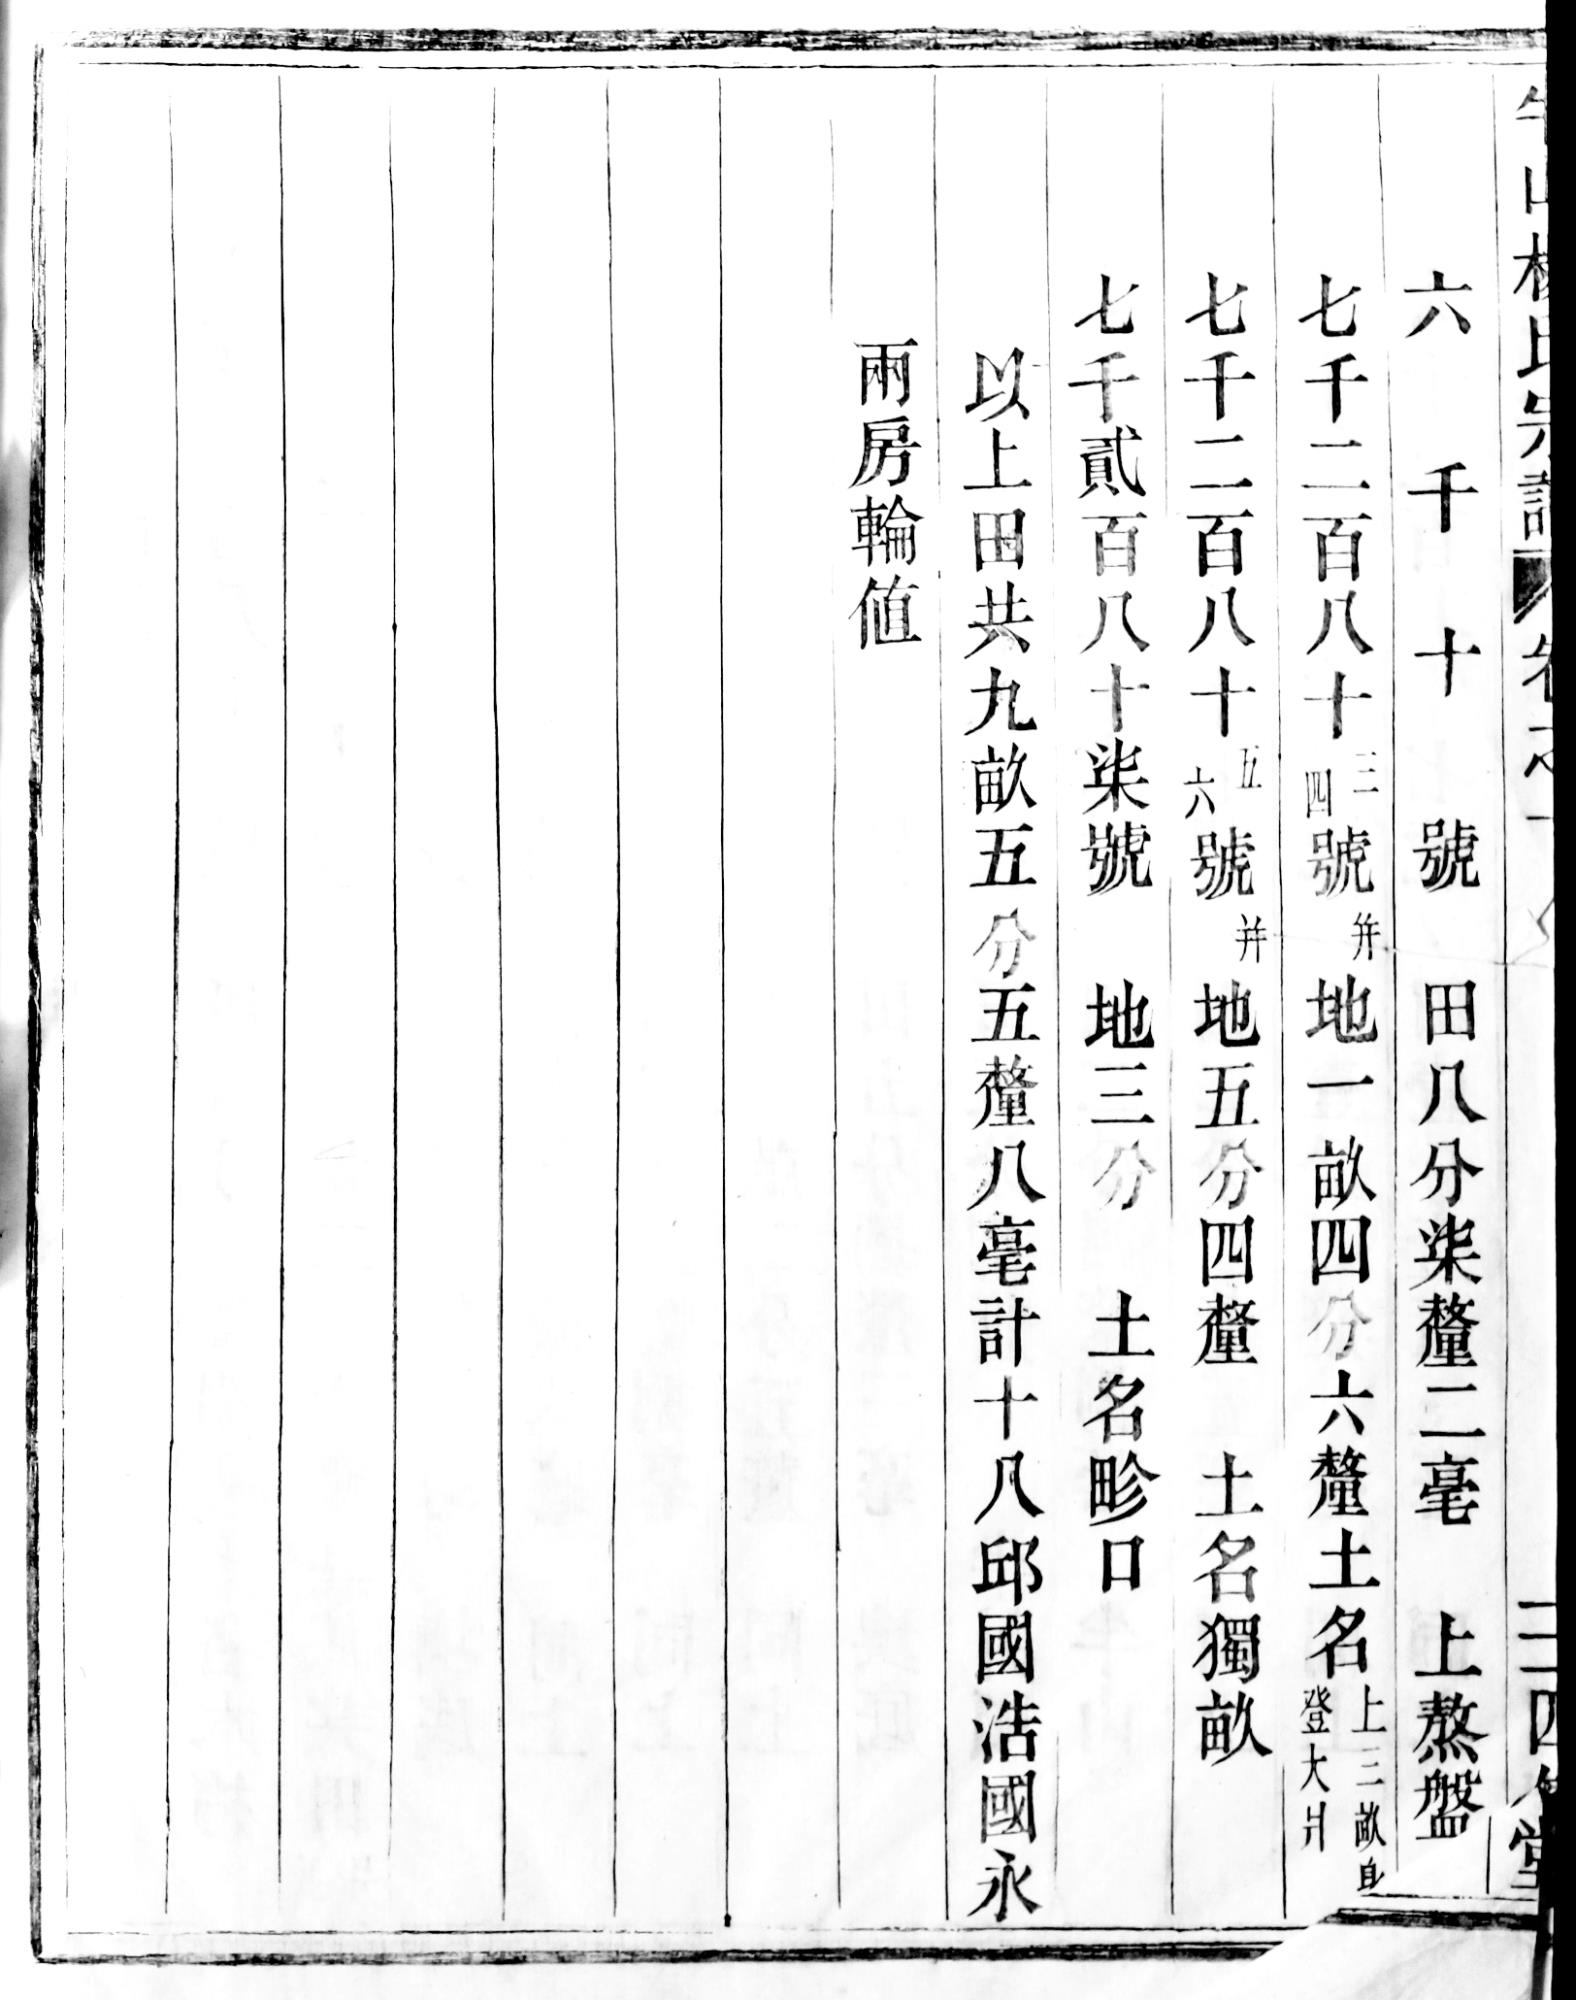 山楊氏宗譜 卷之 四 堂
六千十號 田八分柒釐二毫 上熬盤
七千二百八十三四號并地一畝四分六釐土名上三畝自登大爿
七千二百八十五六號并地五分四釐 土名獨畝
七千貳百八十柒號 地三分 土名畛口
以上田共九畝五分五釐八毫計十八邱國浩國永
兩房輪值